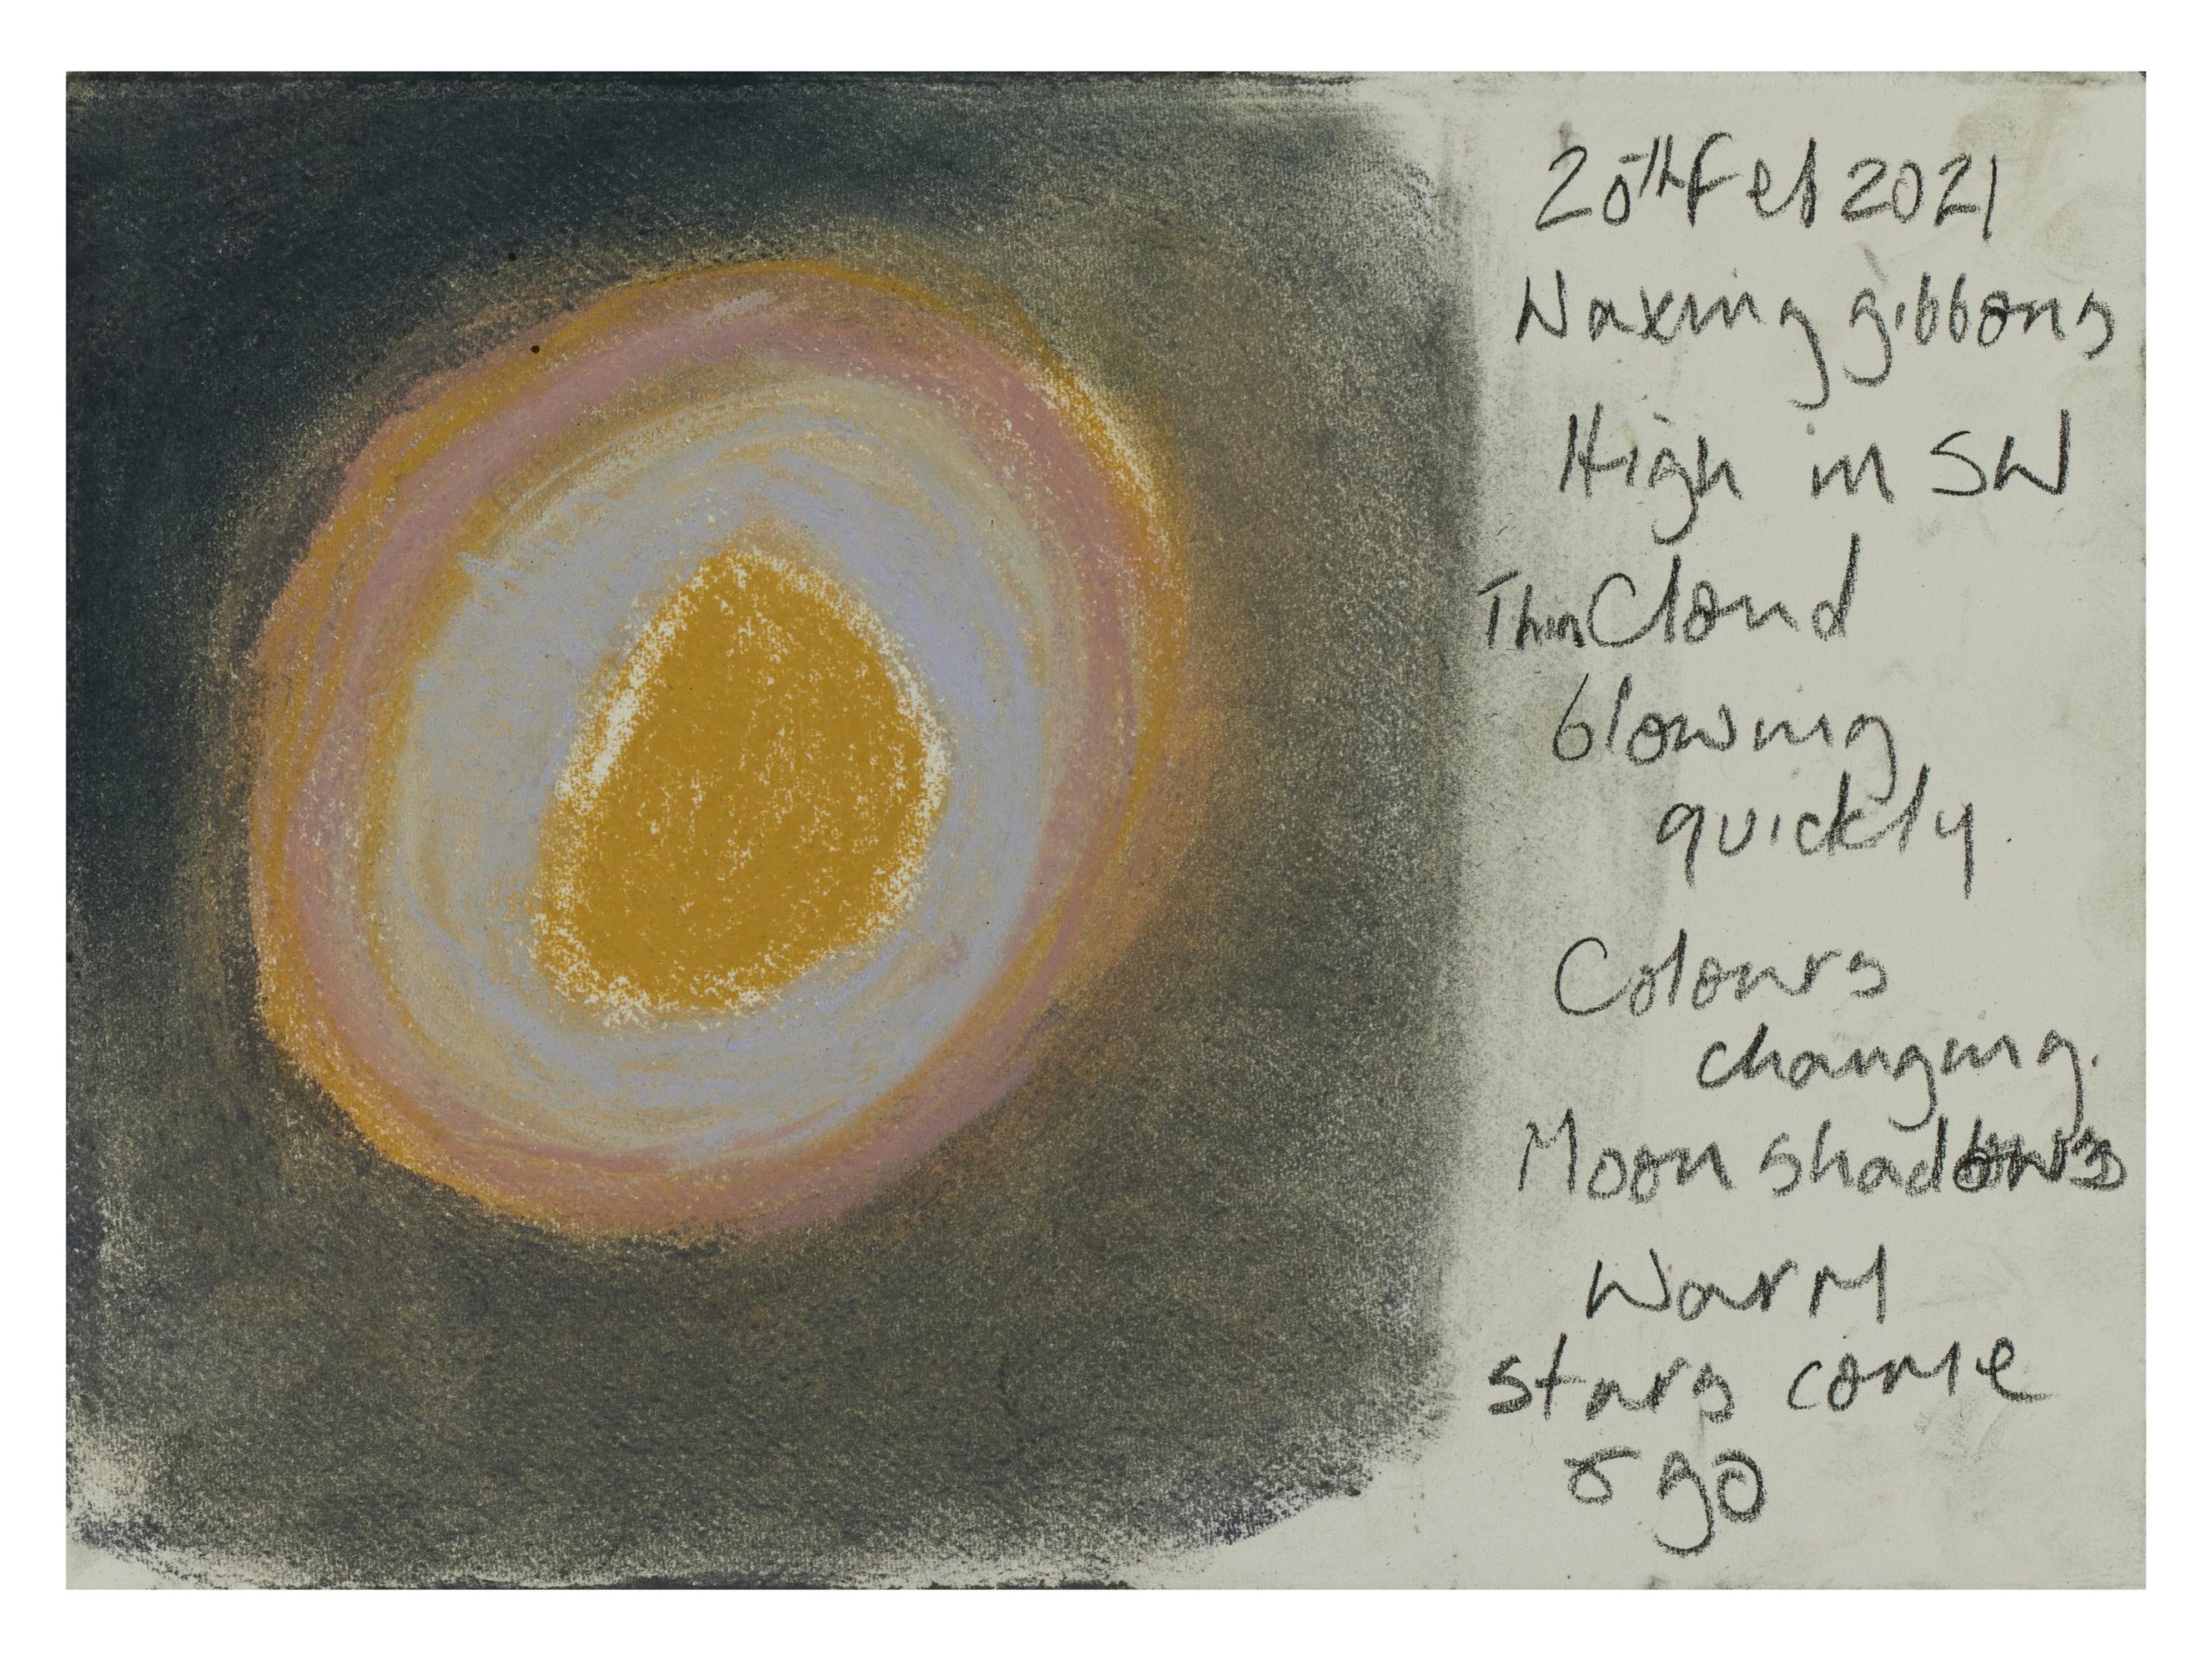 20th Feb 2021
Waxing gibbous
High in SW
Thin Cloud
blowing
quickly.
Colours
changing.
Moon shadows
Warm
stars come
& go